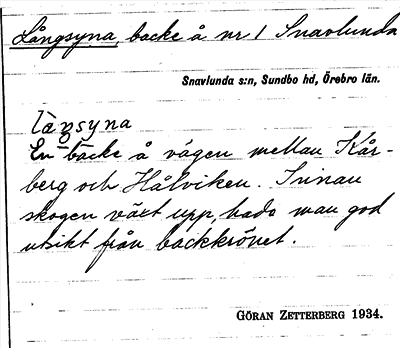 Långsyna, backe å nr 1 Snavlunda
Snavlunda s:n, Sundbo hd, Örebro län.
làŋsyna
En backe å vägen mellan Kår-
berg och Hålviken. Innan
skogen växt upp, hade man god
utsikt från backkrönet.
GÖRAN ZETTERBERG 1934.